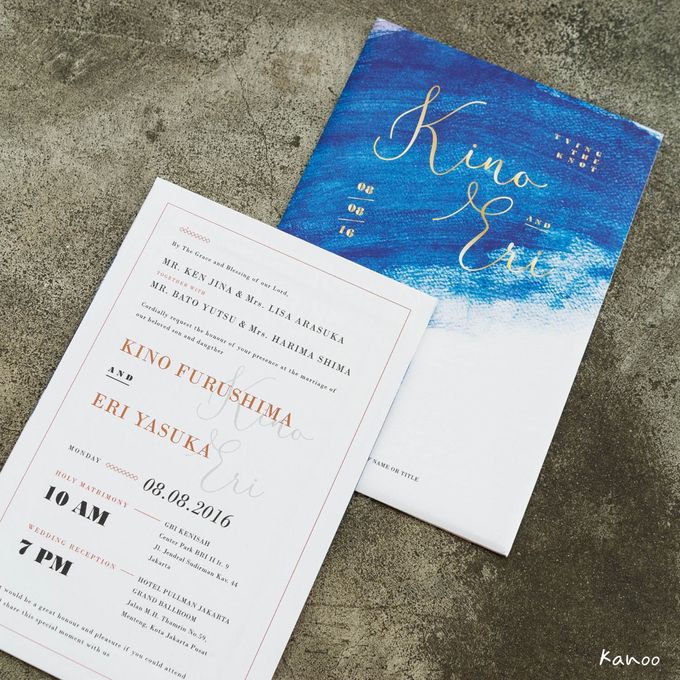 Kino
AND
Eri
TYING
THE
KNOT
08
08
16
NAME OR TITLE
By The Grace and Blessing of our Lord,
MR. KEN JINA & Mrs. LISA ARASUKA
TOGETHER WITH
MR. BATO YUTSU & Mrs. HARIMA SHIMA
Cordially request the honour of your presence at the marriage of
our beloved son and daugther
KINO FURUSHIMA
AND
ERI YASUKA
Kino
Eri
MONDAY 08.08.2016
HOLY MATRIMONY
10 AM
GBI KENISAH
Center Park BRI II lt. 9
Jl. Jendral Sudirman Kav. 44
Jakarta
WEDDING RECEPTION
7 PM
HOTEL PULLMAN JAKARTA
GRAND BALLROOM
Jalan M.H. Thamrin No.59,
Menteng, Kota Jakarta Pusat
would be a great honour and pleasure if you could attend
share this special moment with us
Kanoo